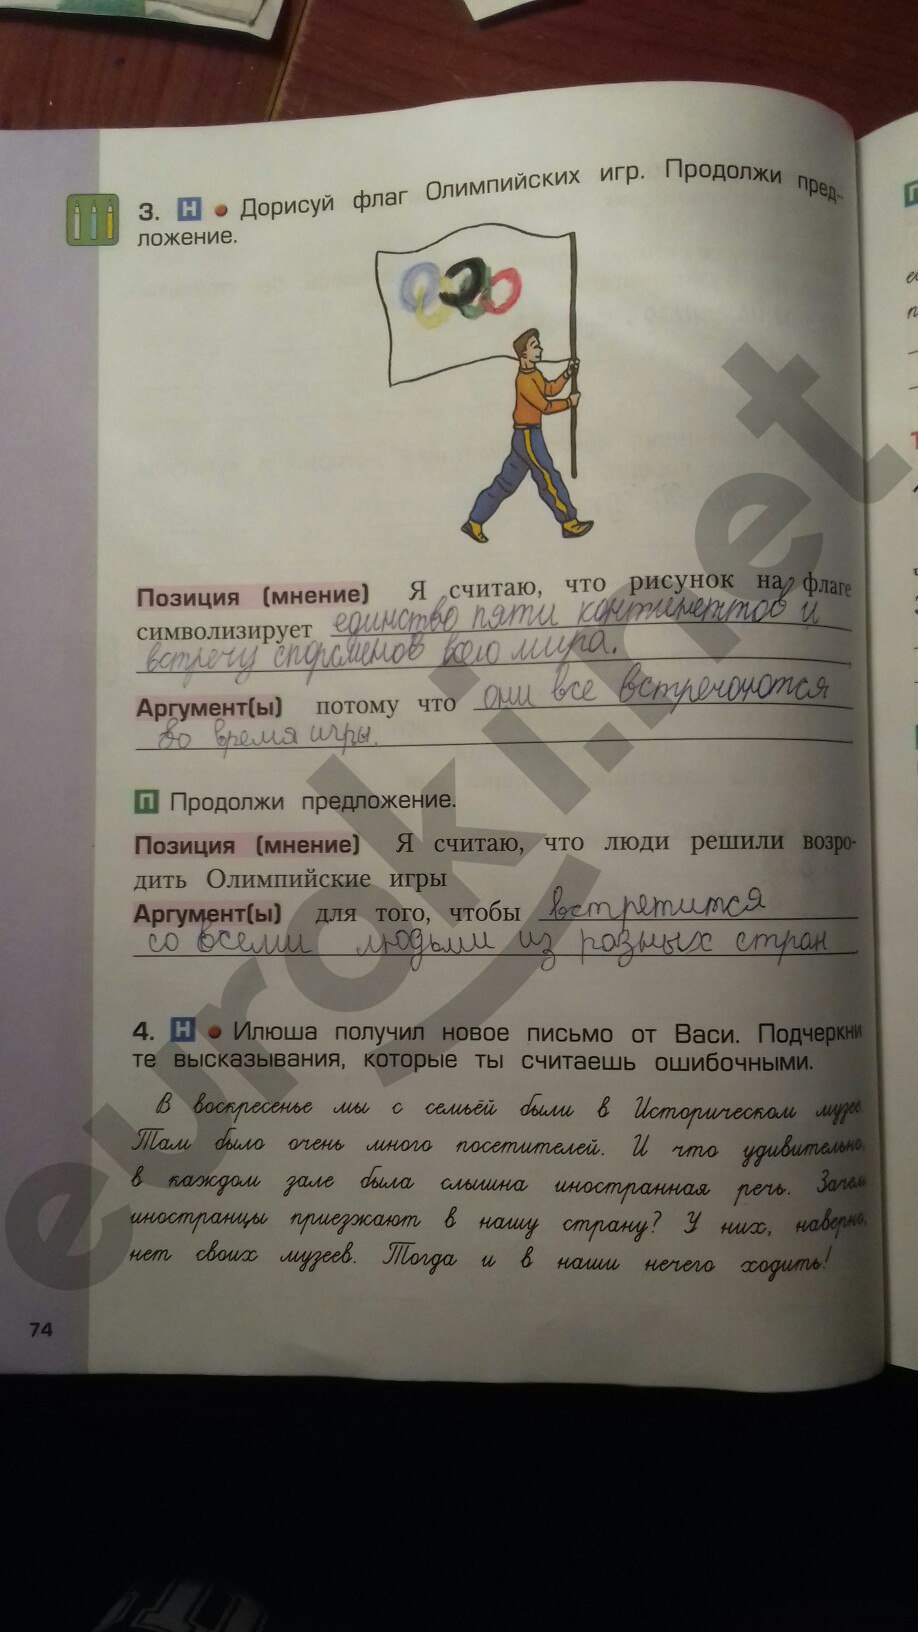 3. Н • Дорисуй флаг Олимпийских игр. Продолжи пред-
ложение.
Позиция (мнение) Я считаю, что рисунок на флаге
символизирует единство пяти континентов и
встречу спорсменов всего мира.
Аргумент(ы) потому что они все встречаются
во время игры.
П Продолжи предложение.
Позиция (мнение) Я считаю, что люди решили возро-
дить Олимпийские игры
Аргумент(ы) для того, чтобы встретится
со всеми людьми из разных стран
4. Н • Илюша получил новое письмо от Васи. Подчеркни
те высказывания, которые ты считаешь ошибочными.
В воскресенье мы с семьёй были в Историческом музее.
Там было очень много посетителей. И что удивительно,
в каждом зале была слышна иностранная речь. Зачем
иностранцы приезжают в нашу страну? У них, наверно,
нет своих музеев. Тогда и в наши нечего ходить!
74
euroki.net